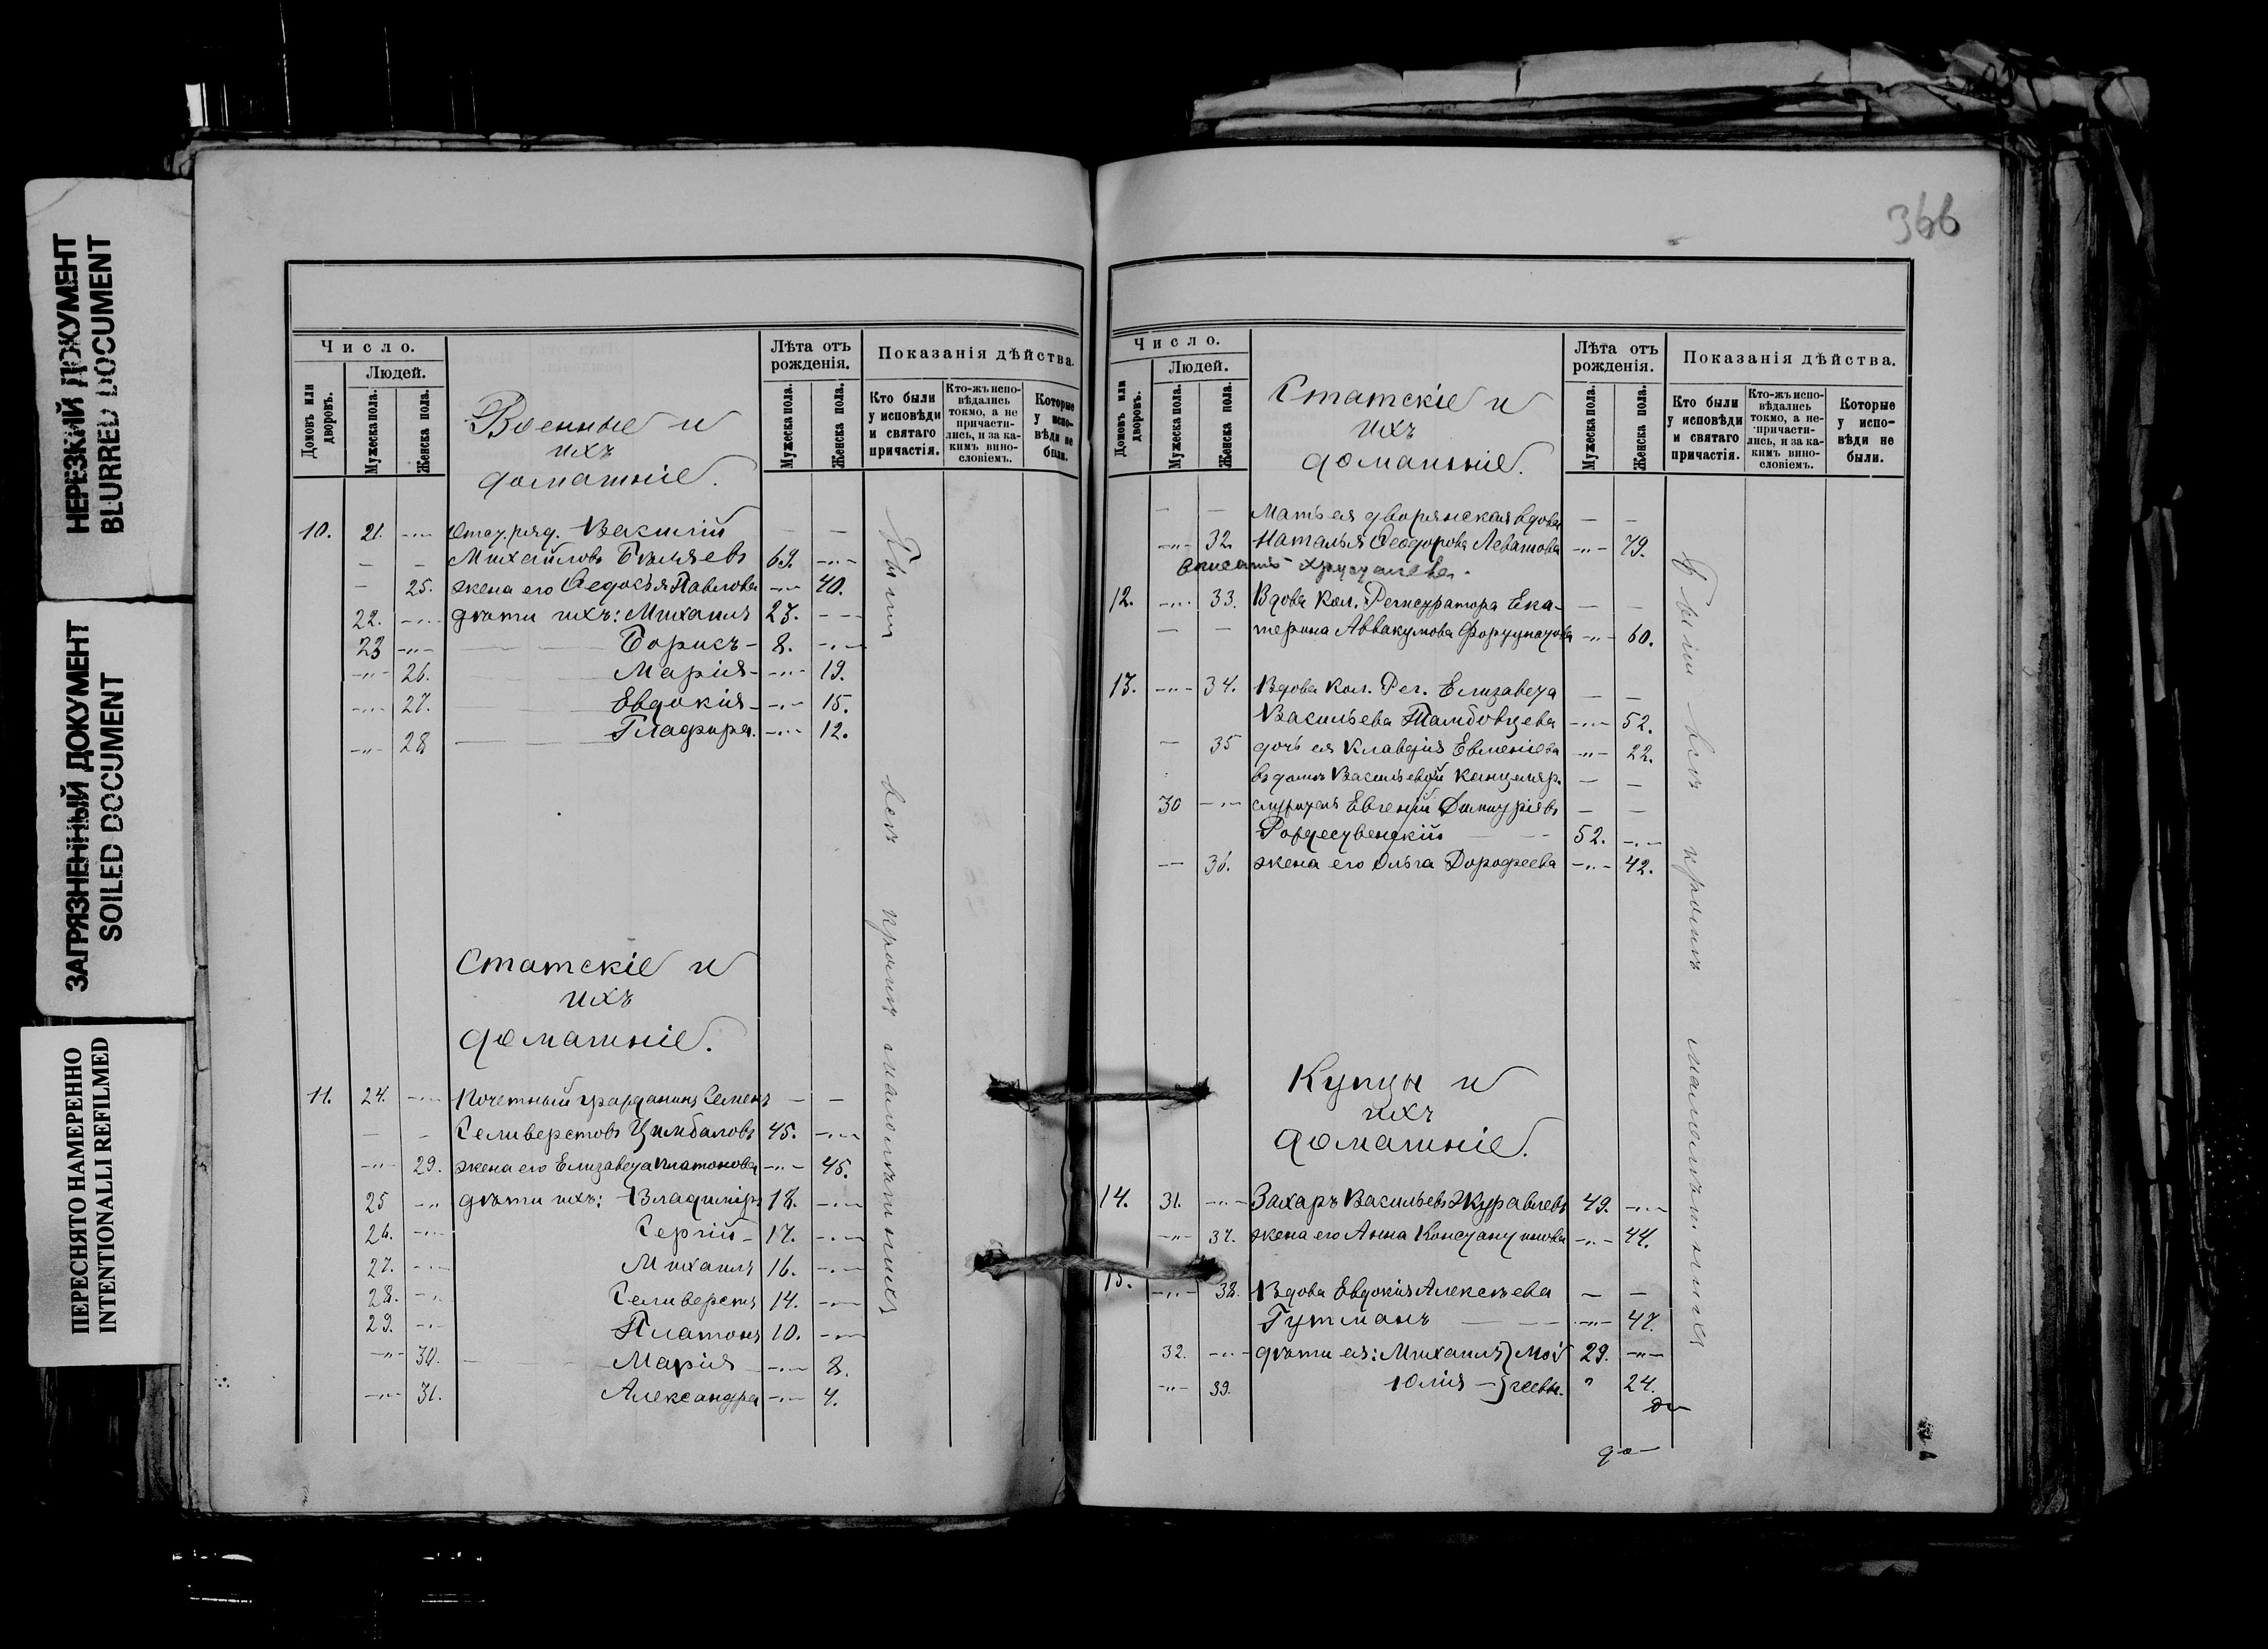 НЕРЕЗКИЙ ДОКУМЕНТ
BLURRED DOCUMENT
ЗАГРЯЗНЕННЫЙ ДОКУМЕНТ
SOILED DOCUMENT
ПЕРЕСНЯТО НАМЕРЕННО
INTENTIONALLI REFILMED
Число.
Людей.
Домовъ или дворовъ.
Мужеска пола.
Женска пола.
Военные и
ихъ
домашніе.
Лѣта отъ рожденія.
Мужеска пола.
Женска пола.
Показанія дѣйства.
Кто были у исповѣди и святаго причастія.
Кто-жъ исповѣдались токмо, а не причастились, и за какимъ винословіемъ.
Которые у исповѣди не были.
10. 21. -"- Отст. ряд. Василій — —
— — Михайловъ Бѣляевъ 69. -"-
— 25. жена его Ѳедосья Павлова -"- 40.
22. -"- дѣти ихъ: Михаилъ 27. - -
23 -"- Борисъ - 8. -"-
-"- 26. Марія - -"- 19.
-"- 27. Евдокія - -"- 15.
-"- 28 Глафира. -"- 12.
Статскіе и
ихъ
домашніе.
11. 24. -"- Почетный гражданинъ Семенъ — —
— — Селиверстовъ Цимбаловъ 45. -"-
-"- 29. жена его Елизавета Платонова -"- 45.
25 -"- дѣти ихъ: Владиміръ 18. -"-
26. -"- Сергій - 17. -"-
27. -"- Михаилъ 16. -"-
28. -"- Селиверстъ 14. -"-
29. -"- Платонъ 10. -"-
-"- 30. Марія -"- 8.
-"- 31. Александра -"- 4.
Были всѣ кромѣ малолѣтнихъ
366
Число.
Людей.
Домовъ или дворовъ.
Мужеска пола.
Женска пола.
Статскіе и
ихъ
домашніе.
Лѣта отъ рожденія.
Мужеска пола.
Женска пола.
Показанія дѣйства.
Кто были у исповѣди и святаго причастія.
Кто-жъ исповѣдались токмо, а не-причастились, и за какимъ винословіемъ.
Которые у исповѣди не были.
— — Мать ея дворянская вдова — —
-"- 32. Наталья Ѳеодорова Левашова -"- 79.
12. -"- 33. Вдова Кол. Регистратора Ека- — —
— — терина Аввакумова Фортунатова -"- 60.
13. -"- 34. Вдова Кол. Рег. Елизавета — —
Васильева Тамбовцева -"- 52.
— 35 дочь ея Клавдія Евменіева -"- 22.
въ домѣ Васильевой канцеляр. — —
30 -"- служитель Евгеній Димитріевъ — —
Рождественскій 52. -"-
— 36. жена его Ольга Дорофеева -"- 42.
Купцы и
ихъ
домашніе.
14. 31. -"- Захаръ Васильевъ Журавлевъ 49. -"-
-"- 37. жена его Анна Константинова -"- 44.
15. -"- 38. Вдова Евдокія Алексѣева — —
Гутманъ -"- 47.
32. -"- дѣти ея: Михаилъ } Мои 29. -"-
-"- 39. Юлія - } сеевы. " 24.
Были всѣ кромѣ малолѣтнихъ